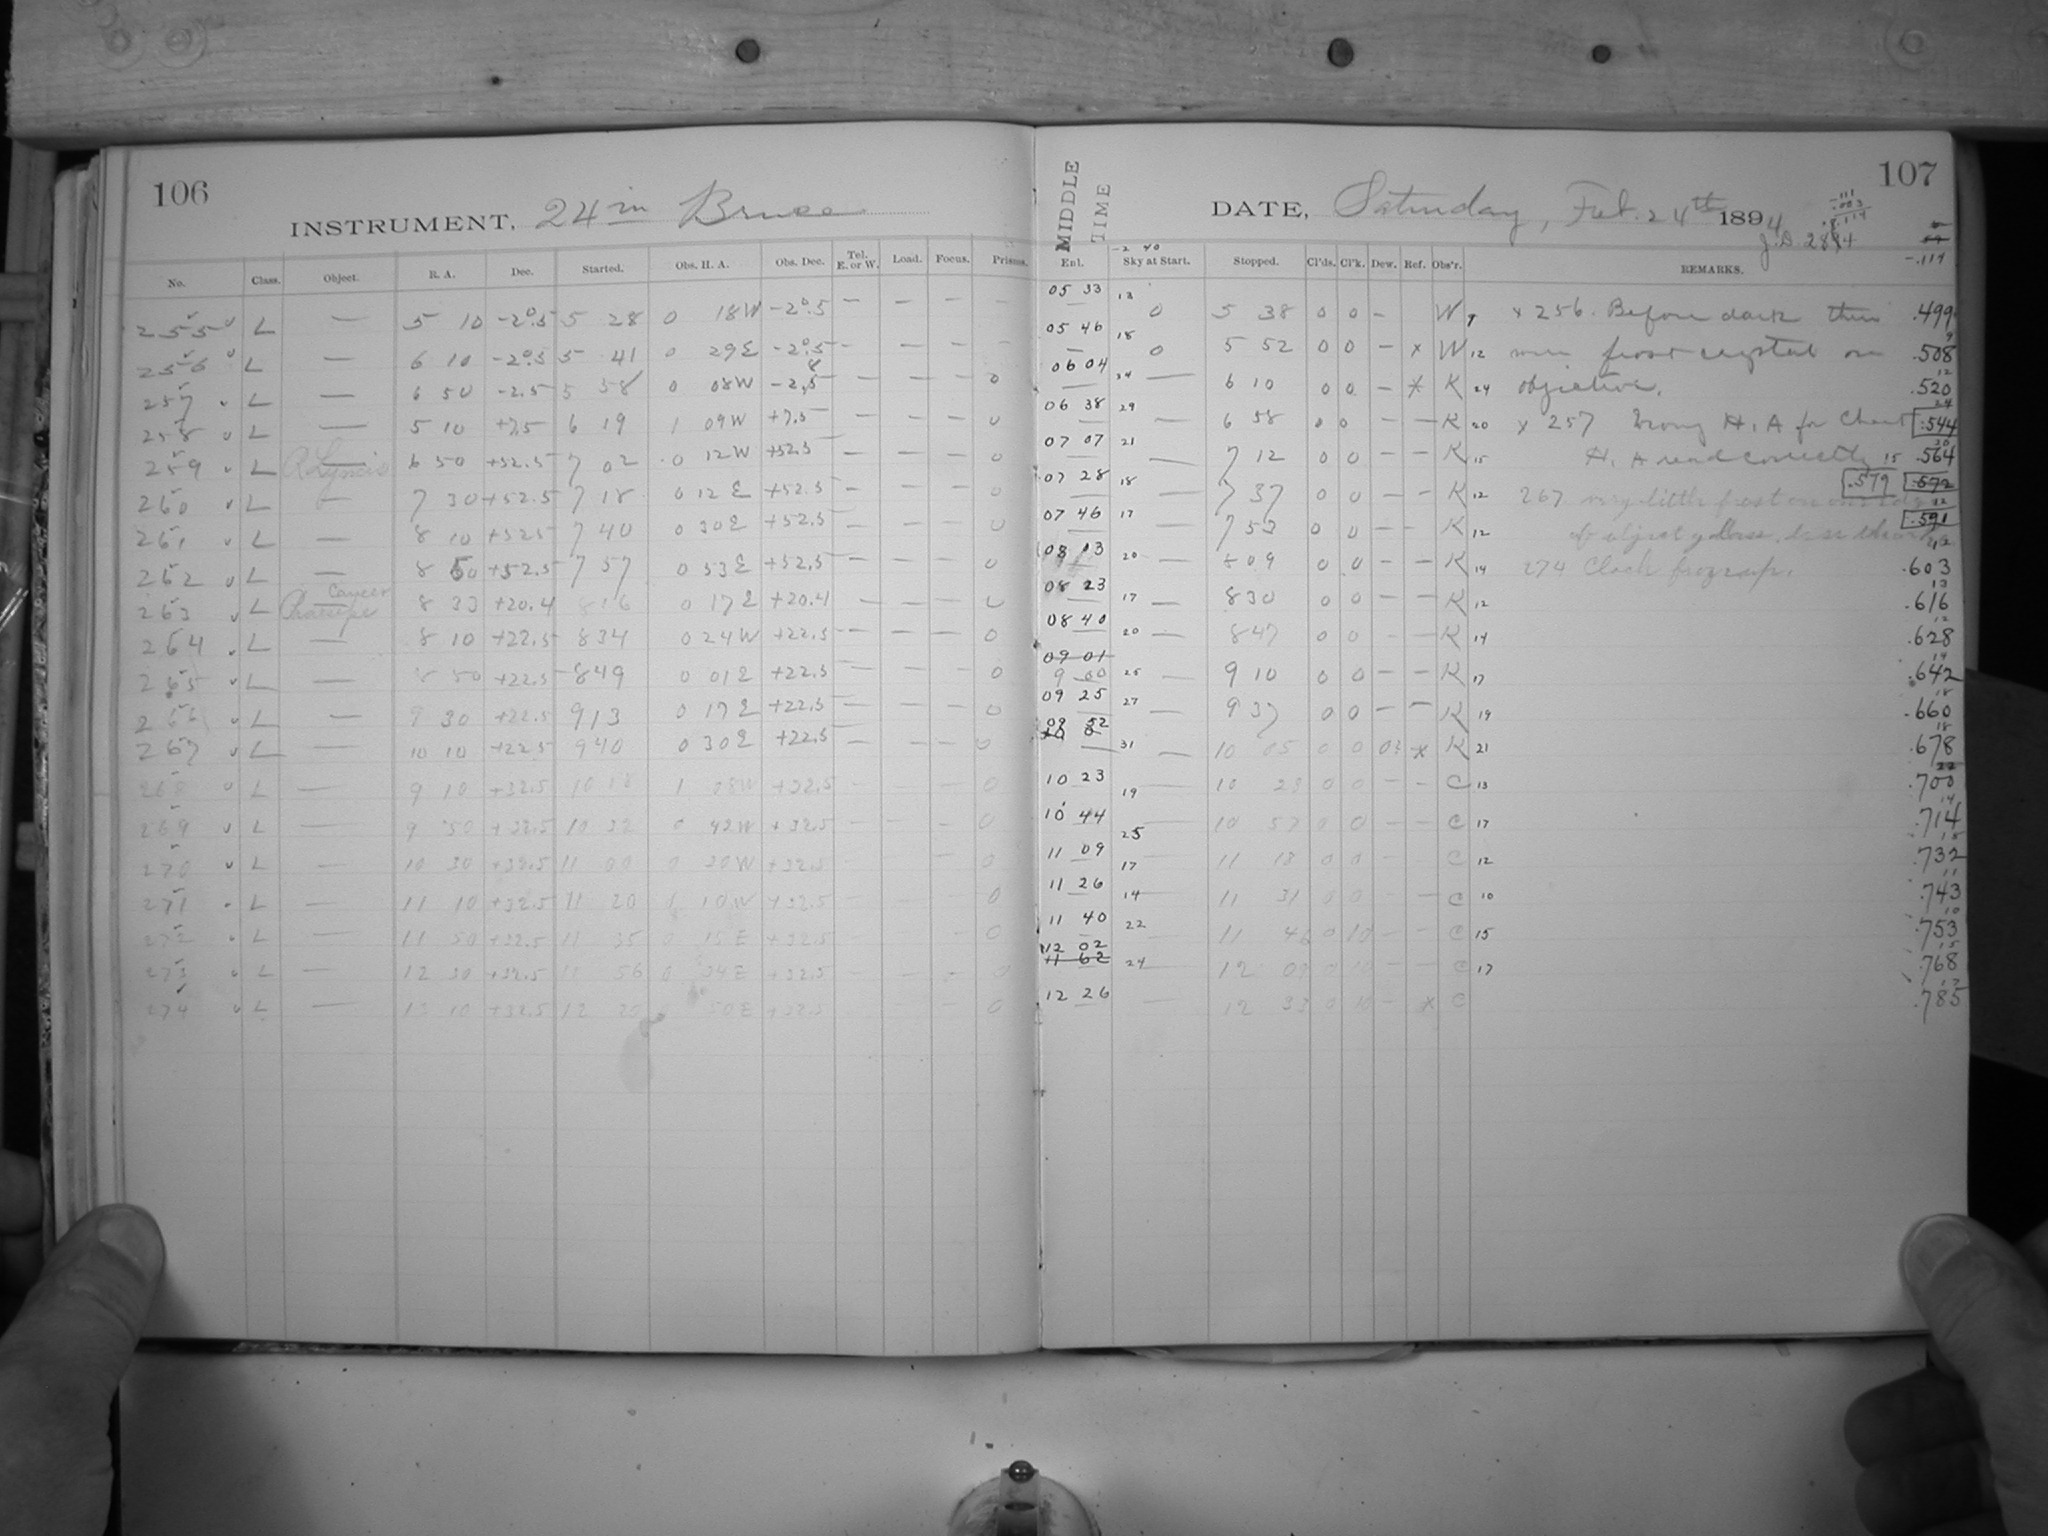 106
INSTRUMENT, 24 in Bruce
No. Class. Object. R. A. Dec. Started. Obs. H. A. Obs. Dec. Tel. E. or W. Load. Focus. Prisms.
255 L — 5 10 -2°.5 5 28 0 18W -2°.5 — — — —
256 L — 6 10 -2°.5 5 41 0 29E -2°.5 — — — —
257 L — 6 50 -2.5 5 58 0 08W -2.5 — — — 0
258 L — 5 10 +7.5 6 19 1 09W +7.5 — — — 0
259 L R Lyncis 6 50 +52.5 7 02 0 12W +52.5 — — —
260 L — 7 30 +52.5 7 18 0 12E +52.5 — — — 0
261 L — 8 10 +52.5 7 40 0 30E +52.5 — — — 0
262 L — 8 50 +52.5 7 57 0 53E +52.5 — — — 0
263 L Cancer 8 33 +20.4 8 16 0 17E +20.4 — — — 0
264 L — 8 10 +22.5 8 34 0 24W +22.5 — — — 0
265 L — 8 50 +22.5 8 49 0 01E +22.5 — — — 0
266 L — 9 30 +22.5 9 13 0 17E +22.5 — — — 0
267 L — 10 10 +22.5 9 40 0 30E +22.5 — — — 0
268 L — 9 10 +32.5 10 18 1 08W +32.5 — — — 0
269 L — 9 50 +32.5 10 32 0 42W +32.5 — — — 0
270 L — 10 30 +32.5 11 00 0 20W +32.5 0
271 L — 11 10 +32.5 11 20 10W +32.5 0
272 L — 11 50 +32.5 11 35 0 15E +32.5 0
273 L — 12 30 +32.5 11 56 0 34E +32.5 0
274 L — 13 10 +32.5 12 20 0 50E +32.5 0
107
MIDDLE TIME
DATE, Saturday, Feb. 24th 1894
J.D. 2884
-.114
-2 40
Enl. Sky at Start. Stopped. Cl'ds. Cl'k. Dew. Ref. Obs'r. REMARKS.
05 33 13 0 5 38 0 0 — W 9 x 256. Before dark there .499
05 46 18 0 5 52 0 0 — x W 12 were frost crystals on .508
06 04 34 — 6 10 0 0 — x K 24 objective. .520
06 38 29 — 6 58 0 0 — — K 20 x 257 Wrong H. A for Chart .544
07 07 21 — 7 12 0 0 — — K 15 H. A read correctly 15 .564
07 28 18 — 7 37 0 0 — — K 12 267 very little frost on .579 .572
07 46 17 — 7 53 0 0 — — K 12 of object glass, .591
08 13 20 — 8 09 0 0 — — K 14 274 Clock froze up. .603
08 23 17 — 8 30 0 0 — — K 12 .616
08 40 20 — 8 47 0 0 — — K 14 .628
09 01
9 00 25 — 9 10 0 0 — — K 17 .642
09 25 27 — 9 37 0 0 — — K 19 .660
09 52 31 — 10 05 0 0 0? x K 21 .678
10 23 19 10 28 0 0 — — C 13 .700
10 44 25 — 10 57 0 0 — — C 17 .714
11 09 17 — 11 18 0 0 — — C 12 .732
11 26 14 — 11 31 0 0 — — C 10 .743
11 40 22 — 11 46 0 10 — — C 15 .753
12 02
11 62 24 — 12 09 0 10 — — C 17 .768
12 26 — 12 33 0 10 — x C .785